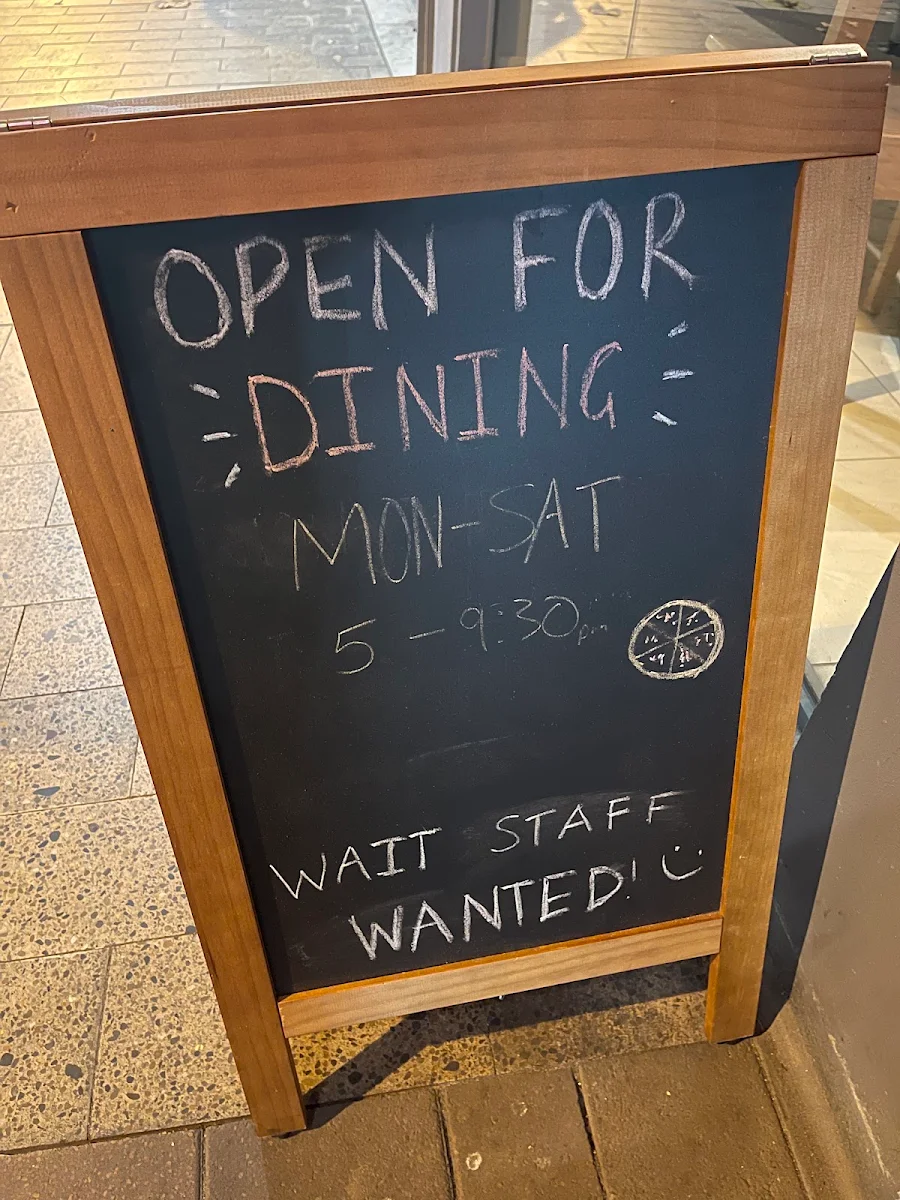 OPEN FOR
DINING
MON-SAT
5 - 9:30pm
WAIT STAFF
WANTED! :)